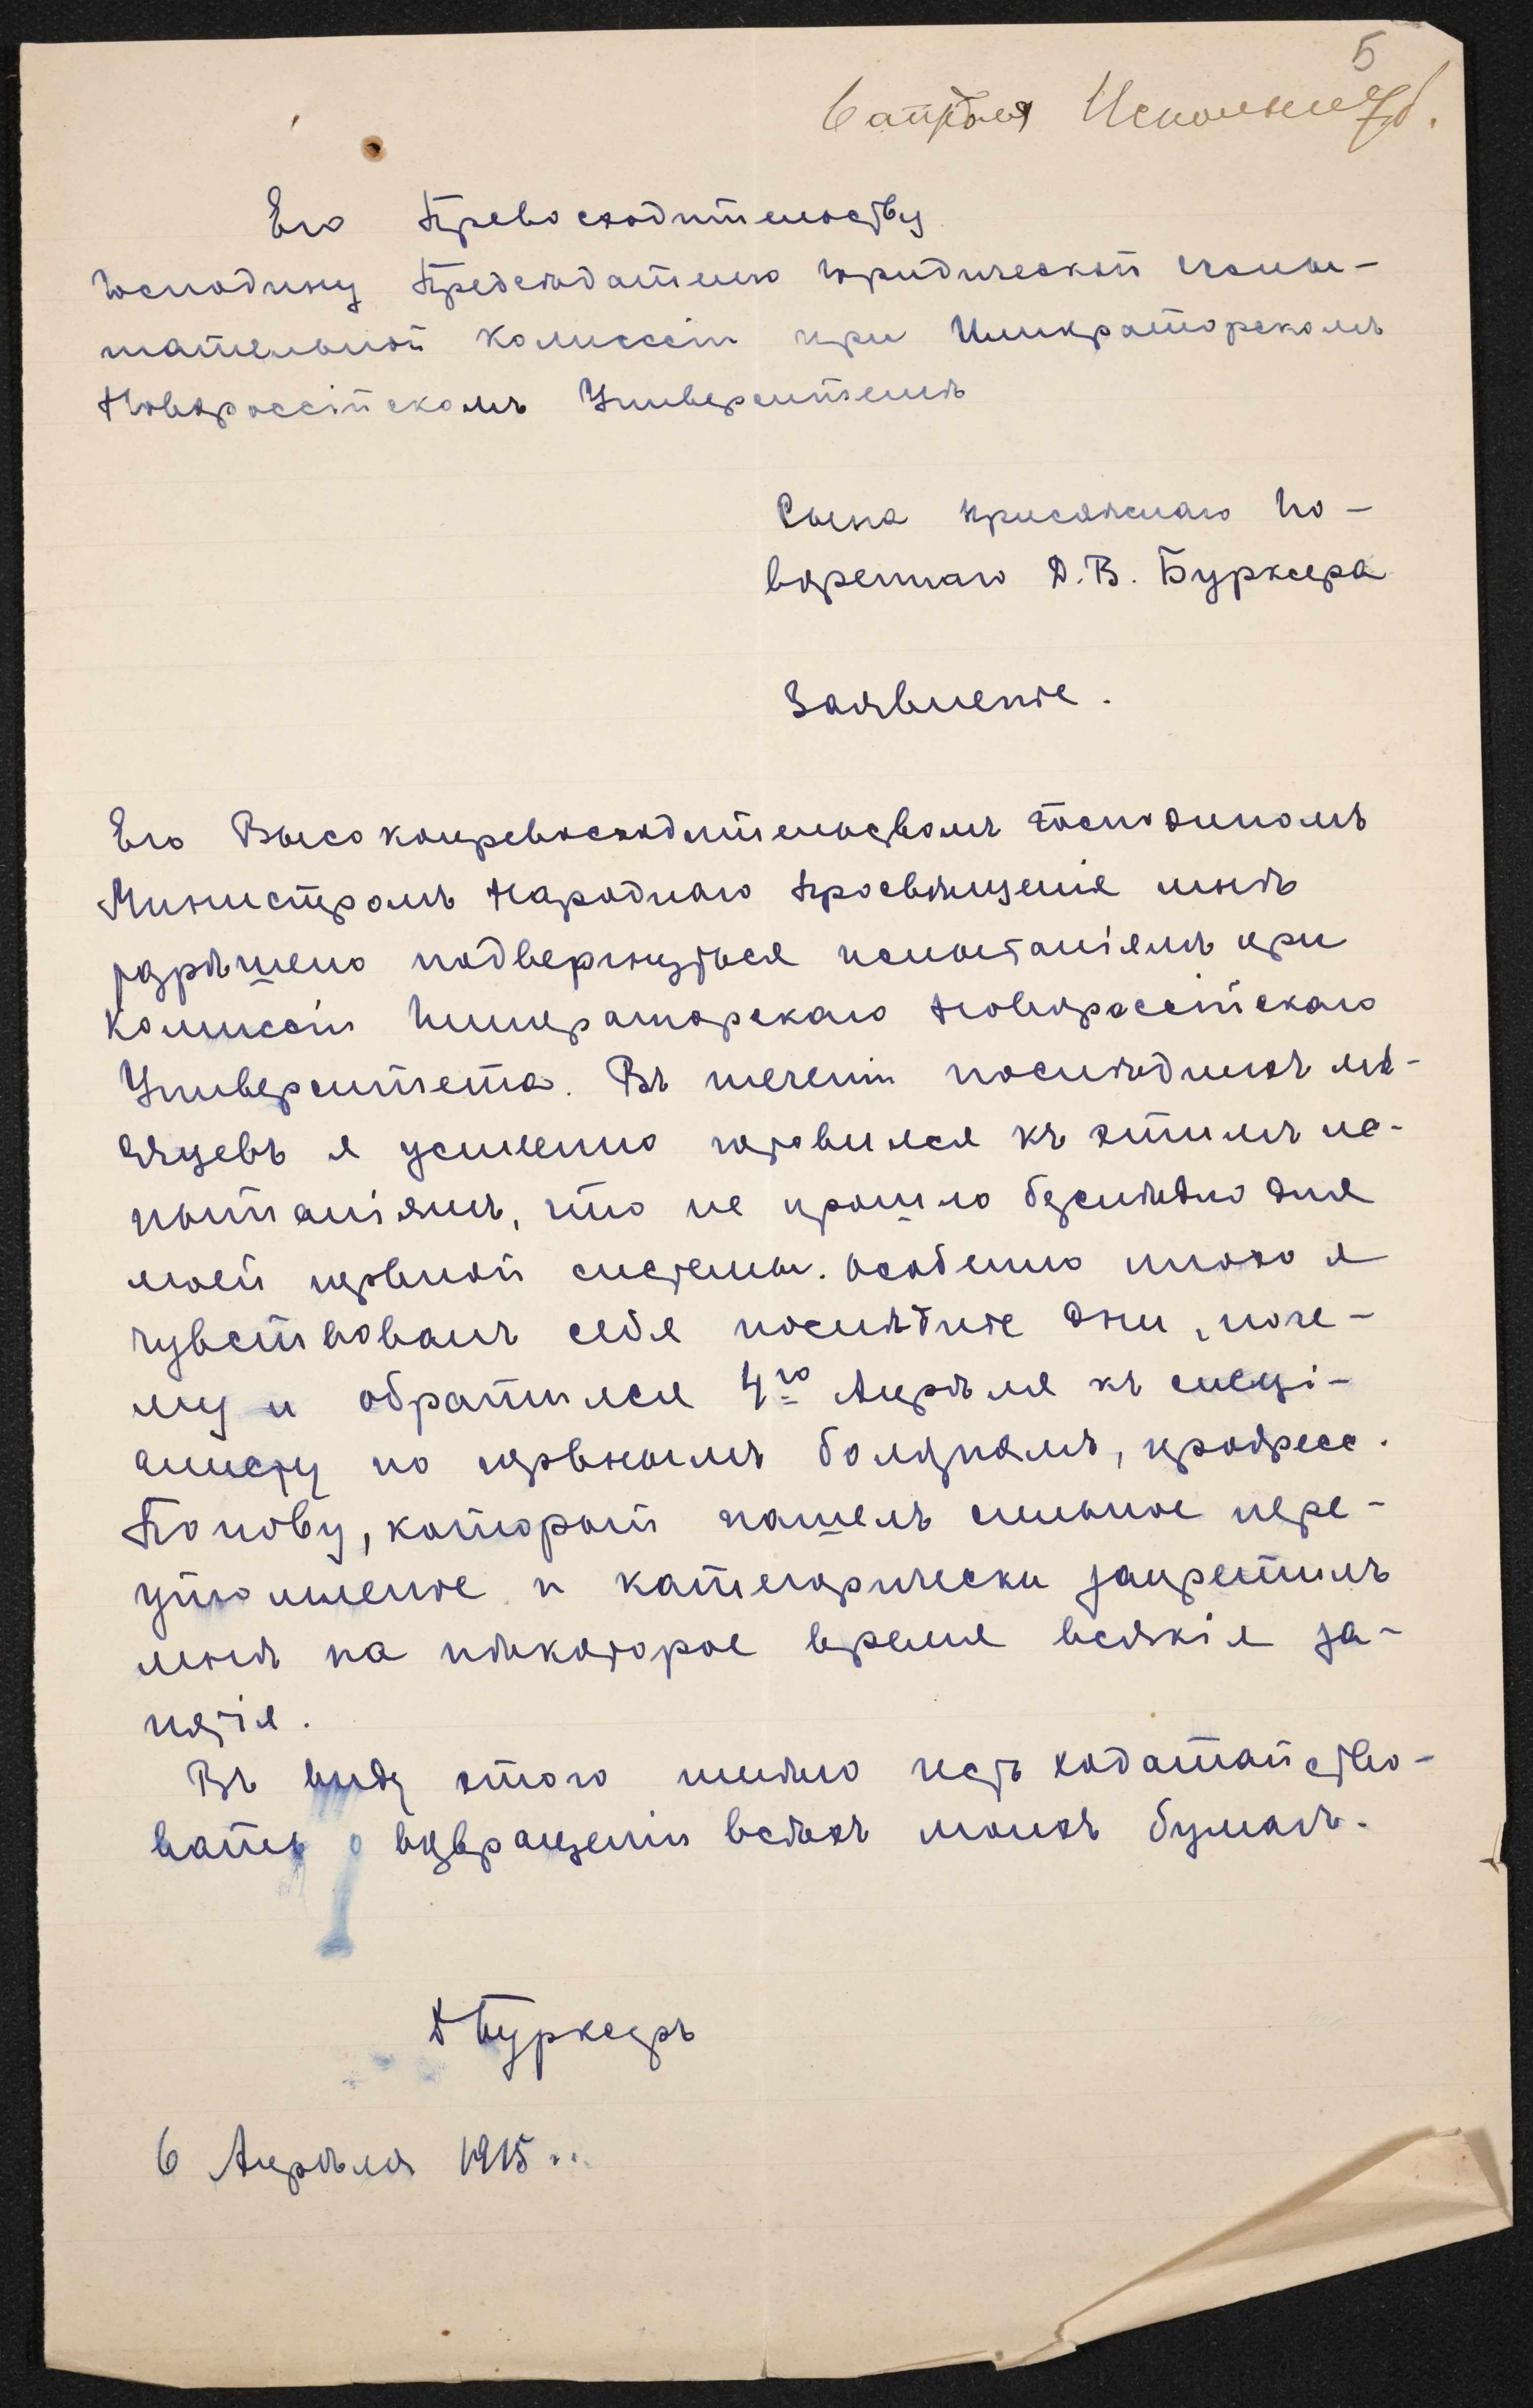 5
6 апрѣля Исполнить.
Его Превосходительству
Господину Предсѣдателю Юридической испы-
тательной Комиссіи при Императорскомъ
Новороссійскомъ Университетѣ
Сына присяжнаго по-
вѣреннаго Д. В. Бурксера
Заявленіе.
Его Высокопревосходительствомъ Господиномъ
Министромъ Народнаго Просвѣщенія мнѣ
разрѣшено подвергнуться испытаніямъ при
Комиссіи Императорскаго Новороссійскаго
Университета. Въ теченіи послѣднихъ мѣ-
сяцевъ я усиленно готовился къ этимъ ис-
пытаніямъ, что не прошло безслѣдно для
моей нервной системы. Особенно плохо я
чувствовалъ себя послѣдніе дни, поче-
му и обратился 4го Апрѣля къ спеці-
алисту по нервнымъ болѣзнямъ, професс.
Попову, который нашелъ сильное пере-
утомленіе и категорически запретилъ
мнѣ на нѣкоторое время всякія за-
нятія.
Въ виду этого имѣю честь ходатайство-
вать о возвращеніи всѣхъ моихъ бумагъ.
Д Бурксеръ
6 Апрѣля 1915 г.